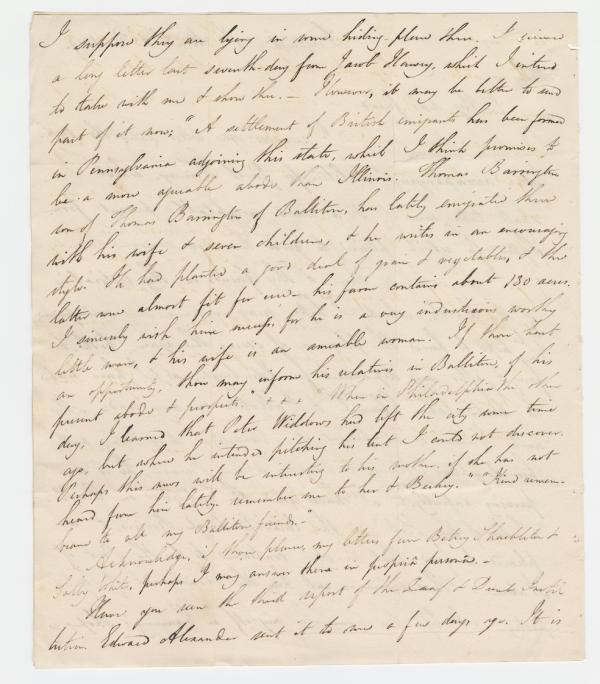 I suppose they are lying in some hiding-place there. I received
a long letter last seventh-day from Jacob Harvey, which I intend
to take with me & show thee. — However, it may be better to send
part of it now; "A settlement of British emigrants has been formed
in Pennsylvania adjoining this state, which I think promises to
be a more agreeable abode than Illinois. Thomas Barrington
son of Thomas Barrington of Ballitore, has lately emigrated there
with his wife & seven children, & he writes in an encouraging
style. He had planted a good deal of grain & vegetables, & the
latter were almost fit for use — his farm contains about 130 acres.
I sincerely wish him success for he is a very industrious worthy
little man, & his wife is an amiable woman. If thou hast
an opportunity, thou may inform his relatives in Ballitore, of his
present abode & prospects." + + + "When in Philadelphia the other
day, I learned that Peter Widdows had left the city some time
ago, but where he intended pitching his tent I could not discover.
Perhaps this news will be interesting to his mother, if she has not
heard from him lately. remember me to her & Becky." "Kind remem-
brance to all my Ballitore friends."
Acknowledge, if thou please, my letters from Betsy Shackleton &
Sally White, perhaps I may answer them in propriâ personâ. —
Have you seen the third report of the Deaf & Dumb Insti-
tution. Edward Alexander sent it to me a few days ago. It is